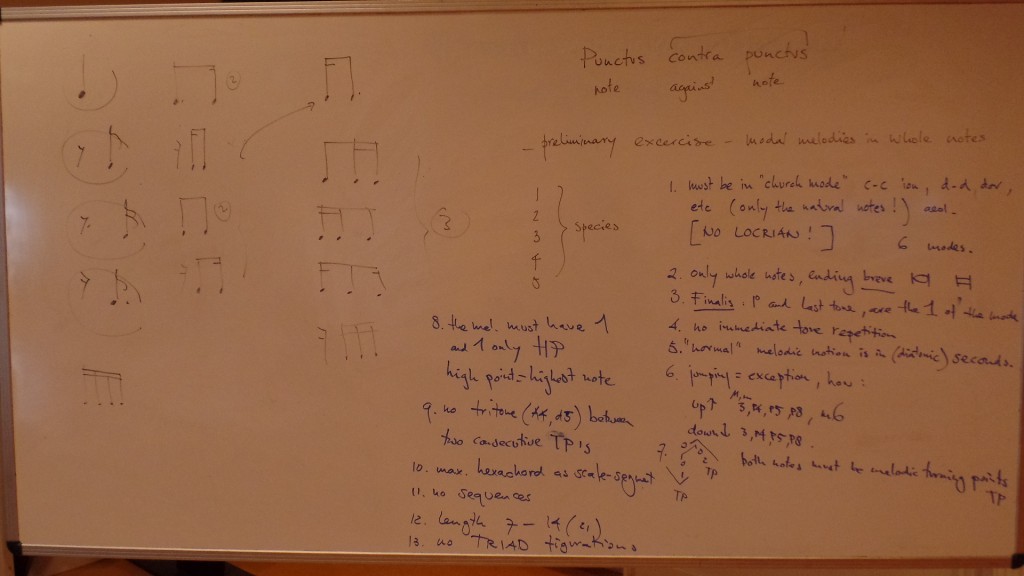 2
2
3
Punctus contra punctus
note against note
- preliminary excercise - modal melodies in whole notes
1
2
3
4
5
species
1. must be in "church mode" c-c ion, d-d, dor,
etc (only the natural notes!) aeol.
[NO LOCRIAN!] 6 modes.
2. only whole notes, ending breve
3. Finalis: 1st and last tone, are the 1 of the mode
4. no immediate tone repetition
5. "normal" melodic motion is in (diatonic) seconds.
6. jumping = exception, how:
up↑ M,m 3, P4, P5, P8, m6
down↓ 3, P4, P5, P8.
7. TP TP both notes must be melodic turning points
TP
8. the mel. must have 1
and 1 only HP
high point = highest note
9. no tritone (A4, d5) between
two consecutive TP's
10. max. hexachord as scale-segmet
11. no sequences
12. length 7 - 14 (21)
13. no TRIAD figurations